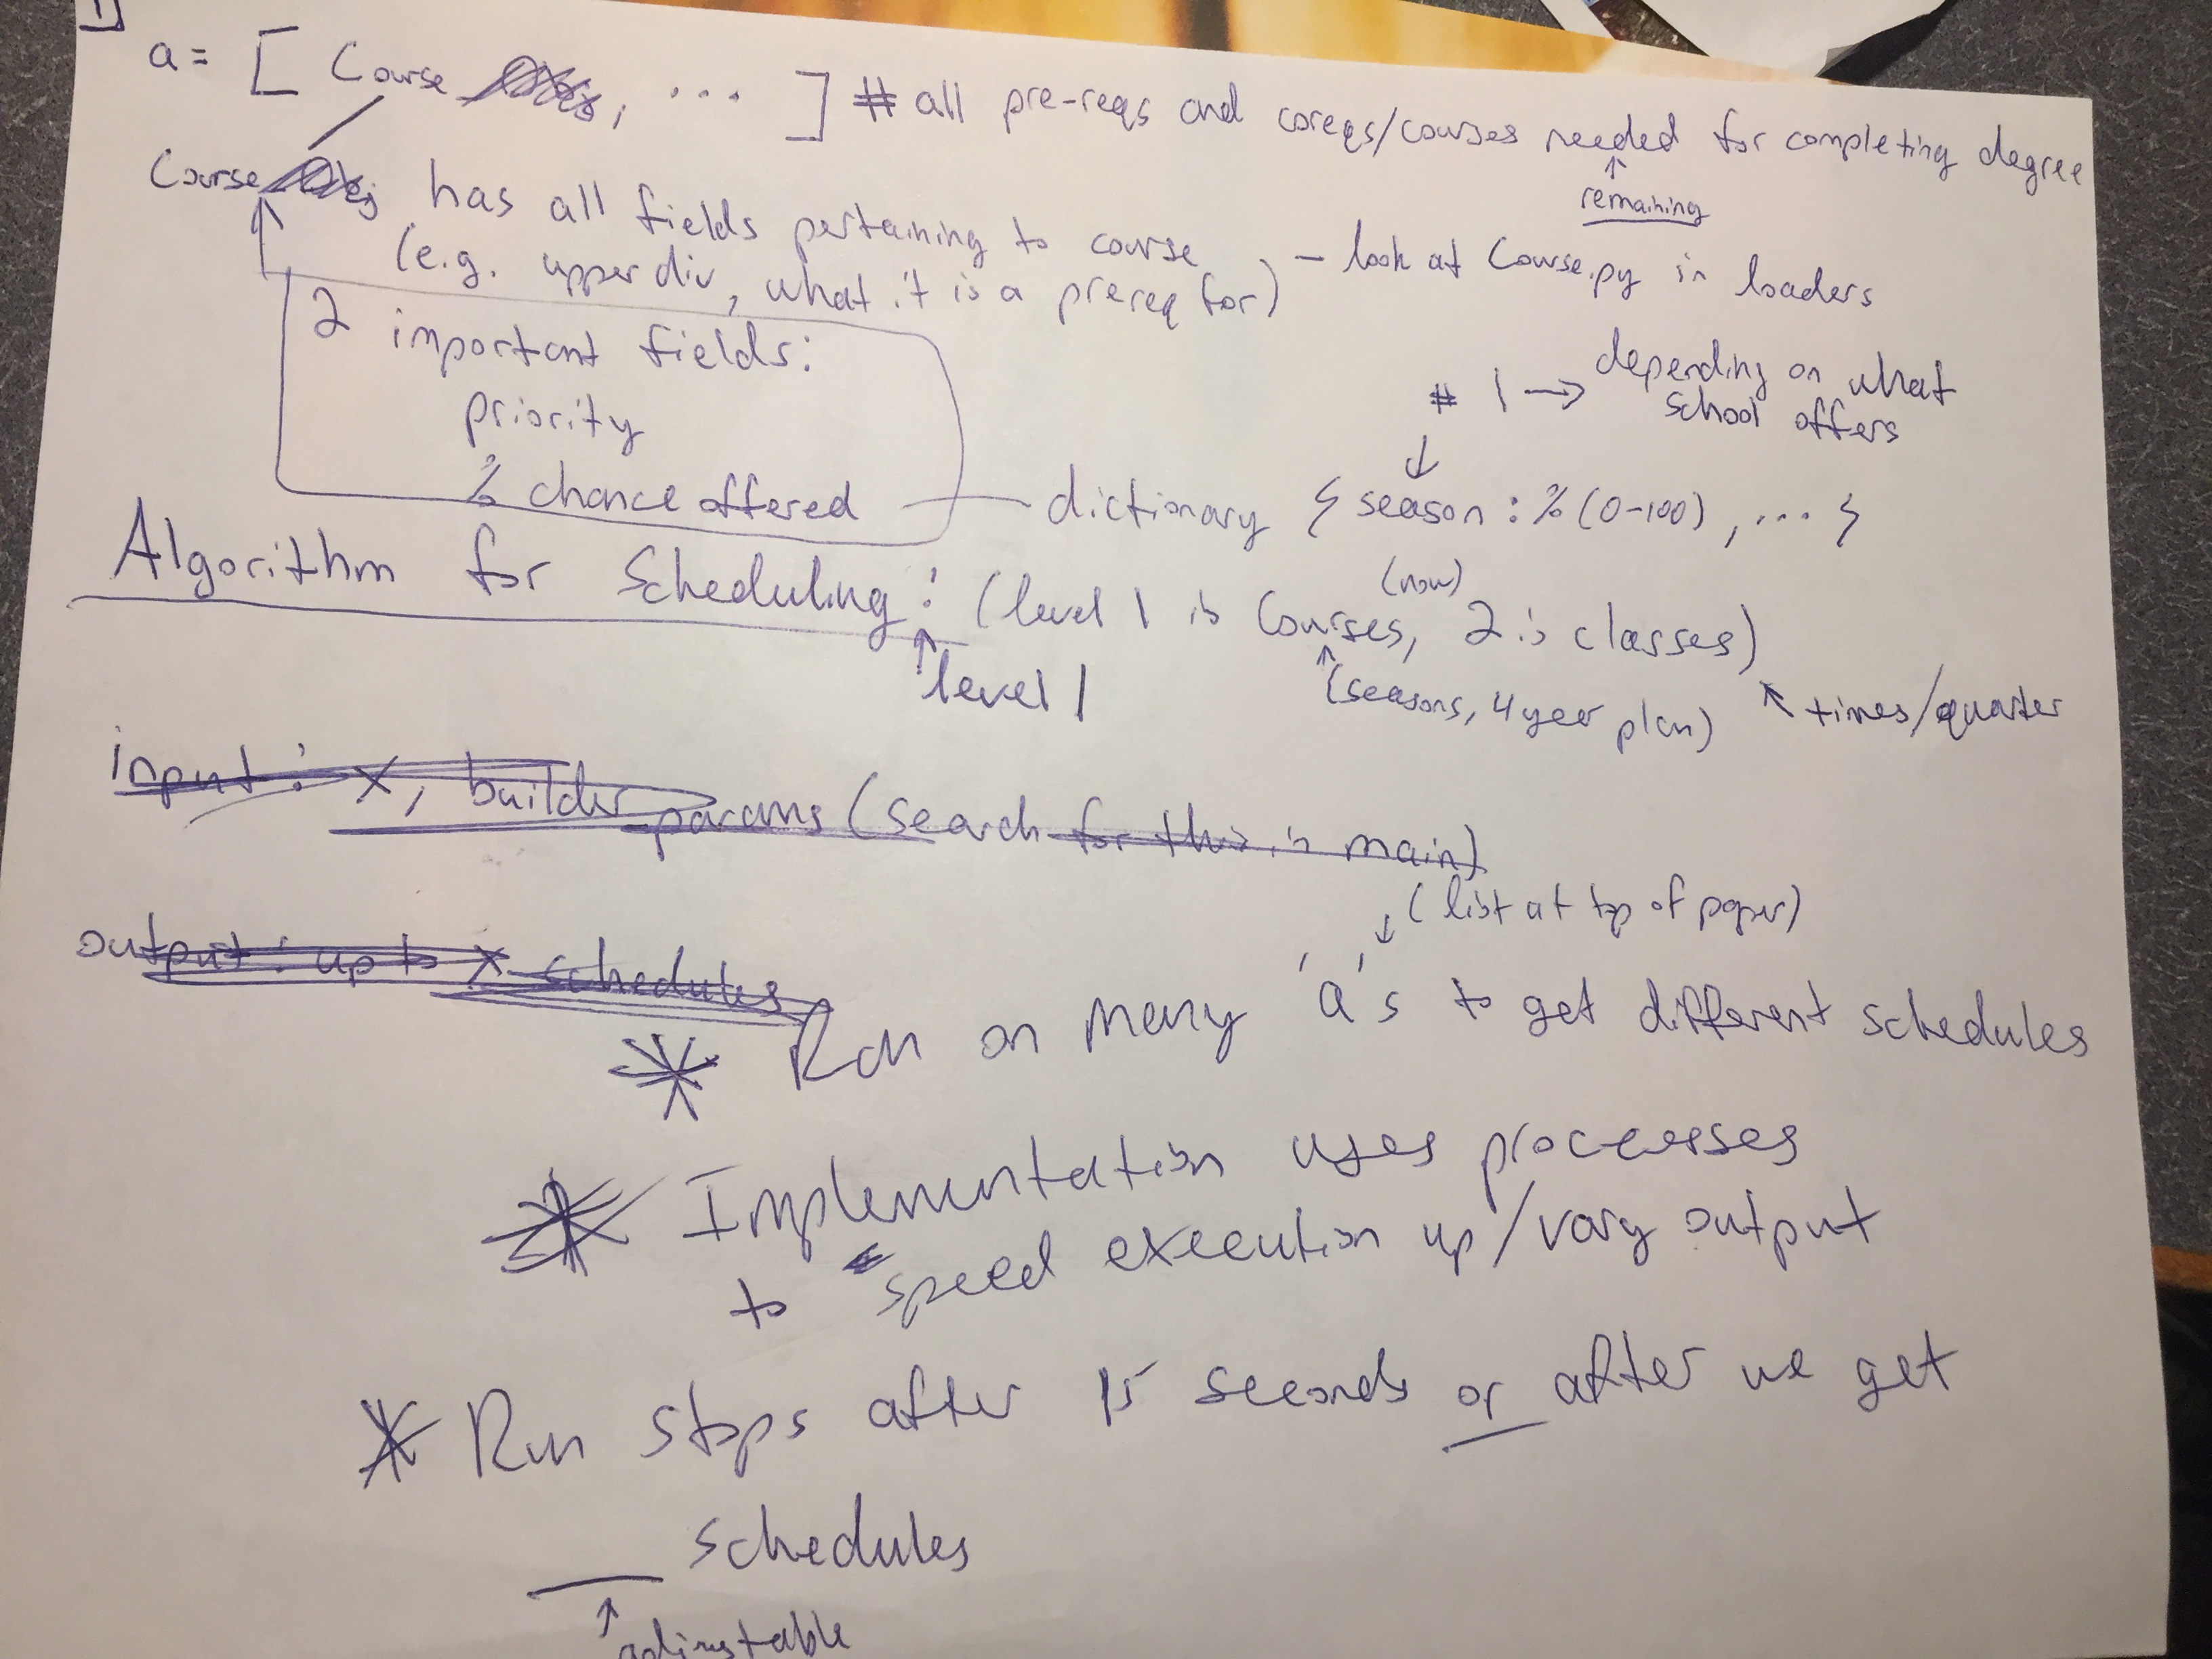 1
a = [ Course , ... ] # all pre-reqs and coreqs/courses needed for completing degree
remaining
Course has all fields pertaining to course
(e.g. upper div, what it is a prereq for) - look at Course.py in loaders
2 important fields:
priority
% chance offered — dictionary { season : % (0-100) , ... }
# 1 → depending on what
school offers
Algorithm for Scheduling : (level 1 is Courses, 2 is classes)
(now)
level 1
(seasons, 4 year plan)
times/quarter
input : X, builder_params (search for this in main)
output : up to X schedules
(list at top of paper)
* Run on many 'a's to get different schedules
* Implementation uses processes
to speed execution up/vary output
* Run stops after 15 seconds or after we get
___ schedules
adjustable